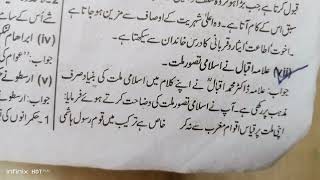 قبول کرتا ہے جب بڑا ہو کر
سبق اس کے کام آتا ہے۔ وہ اعلیٰ شہریت کے اوصاف سے مزین ہو جاتا ہے
۔ اخوت اطاعت ایثار و قربانی کا درس خاندان سے سیکھتا ہے۔
(xii) علامہ اقبال نے اسلامی تصور ملت۔
جواب: علامہ ڈاکٹر محمد اقبالؒ نے اپنے کلام میں اسلامی ملت کی بنیاد صرف
مذہب پر رکھی ہے۔ آپ نے اسلامی تصور ملت کی وضاحت کرتے ہوئے فرمایا:
اپنی ملت پر قیاس اقوام مغرب سے نہ کر خاص ہے ترکیب میں قوم رسول ہاشمی
(iv)
جواب:
(v) ارسطو نے
جواب: ارسطو نے
1- حکمرانوں کی
infinix HOT